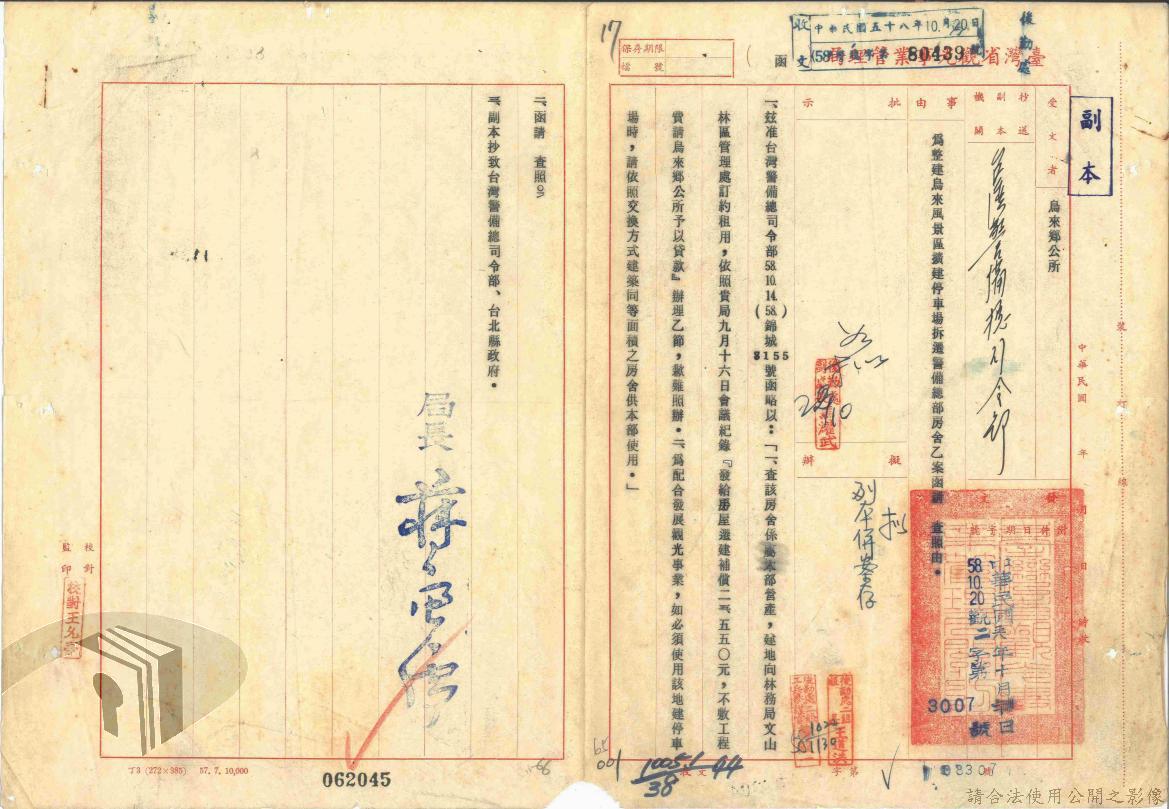 副本
後勤處
收文
中華民國五十八年10月20日
80439
臺灣省觀光事業管理局
函
保存期限
檔號
17
受文者
烏來鄉公所
抄送副本機關
台灣警備總司令部
事由
為整建烏來風景區擴建停車場拆遷警備總部房舍乙案函請 查照由。
批示
擬辦
擬
副本併案存
中華民國 年 月 日
發文
附件
日期
字號
中華民國 年十月 日
58.10.20觀二字第
3007
號
裝訂線
一、玆准台灣警備總司令部58.10.14.(58.)錦城8155號函略以:「一、查該房舍係屬本部營產,建地向林務局文山
林區管理處訂約租用,依照貴局九月十六日會議紀錄『發給房屋遷建補償二一、五五〇元,不敷工程
費請烏來鄉公所予以貸款』辦理乙節,歉難照辦。二、為配合發展觀光事業,如必須使用該地建停車
場時,請依照交換方式建築同等面積之房舍供本部使用。」
二、函請 查照。
三、副本抄致台灣警備總司令部、台北縣政府。
局長
校對
監印
校對王允臺
丁3 (272×385) 57. 7. 10,000
062045
請合法使用公開之影像